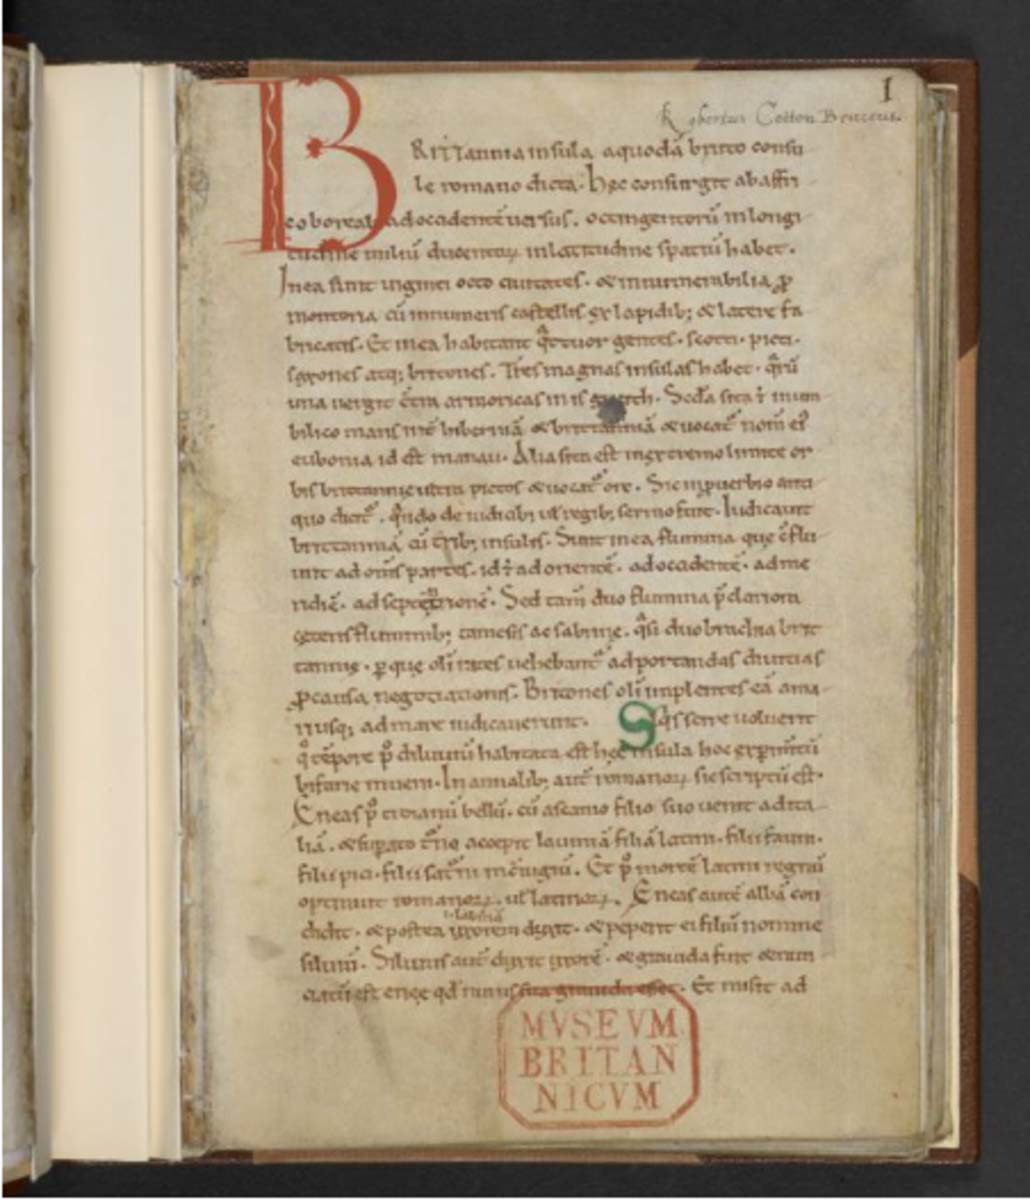 1
Robertus Cotton Bruceus.
BRITTannia insula aquodā britto consu
le romano dicta. hęc consurgit abaffri
co boreali adoccidentē uersus. octingentorū inlongi
tudine miliū ducentoꝝ inlatitudine spatiū habet.
Inea sunt uiginti octo ciuitates. & innumerabilia ꝓ
montoria cū innumeris castellis ex lapidib; & latere fa
bricatis. Et inea habitant qͣttuor gentes. scotti. picti.
saxones atq; britones. Tres magnas insulas habet. qͣrū
una uergit cͨtra armoricas
bilico maris int̄ hiberniā & brittanniā & uocat᷑ nom̄ ei᷒
eubonia id est manau. Alia sita est inextremo limite or
bis brittannię ultra pictos & uocat᷑ orc. Sic inꝓuerbio anti
quo dicit᷑. qͣndo de iudicib; ul̄ regib; sermo fuit. Iudicauit
brittanniā cū trib; insulis. Sunt inea flumina quę ɔflu
unt ad om̄s partes. id ÷ ad orientē. adoccidentē. adme
ridiē. adseptētrionē. Sed tam̄ duo flumina p̄clariora
cęteris fluminib; tamesis ac sabrinę. qͣsi duo brachia brit
tannię. ꝑ quę oli rates uehebant᷑ adportandas diuitias
ꝓ causa negotiationis. Britones oli implentes eā ama
riusq; admare iudicauerunt. Sqͥs scire uoluerit
qͦ tēpore p᷒ diluuiū habitata est hęc insula hoc exꝑimtū
bifarie inueni. In annalib; aut̄ romanoꝝ sic scriptū est.
Eneas p᷒ troianū bellū. cū ascanio filio suo uenit adita
liā. & suꝑato turno accepit lauiniā filiā latini. filii fauni.
filii pici. filii saturni Et p᷒ mortē latini regnū
optinuit romanoꝝ. ul̄ latinoꝝ. Eneas autē albā con
.i. labinā
didit. & postea uxorem duxit. & peperit ei filiū nomine
siluiū. Siluius aut̄ duxit uxorē. & grauida fuit & nun
ciatū est enęę qd̄ nurus sua grauida esset. Et misit ad
MVSEVM
BRITAN
NICVM